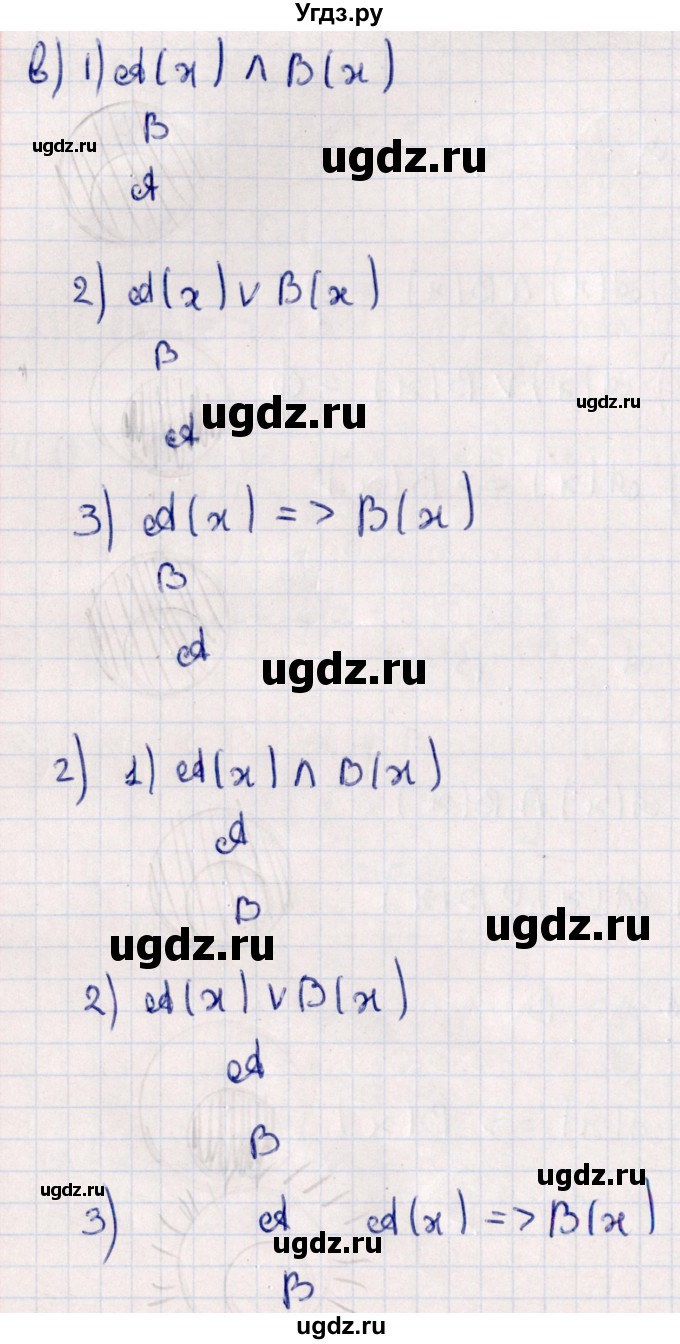 Угдз.ру
в) 1) A(x) ∧ B(x)
B
ugdz.ru
ugdz.ru
A
2) A(x) ∨ B(x)
B
ugdz.ru
ugdz.ru
A
3) A(x) => B(x)
B
A
ugdz.ru
г) 1) A(x) ∧ B(x)
A
B
ugdz.ru
ugdz.ru
2) A(x) ∨ B(x)
A
B
ugdz.ru
ugdz.ru
3) A A(x) => B(x)
ugdz.ru
B
ugdz.ru